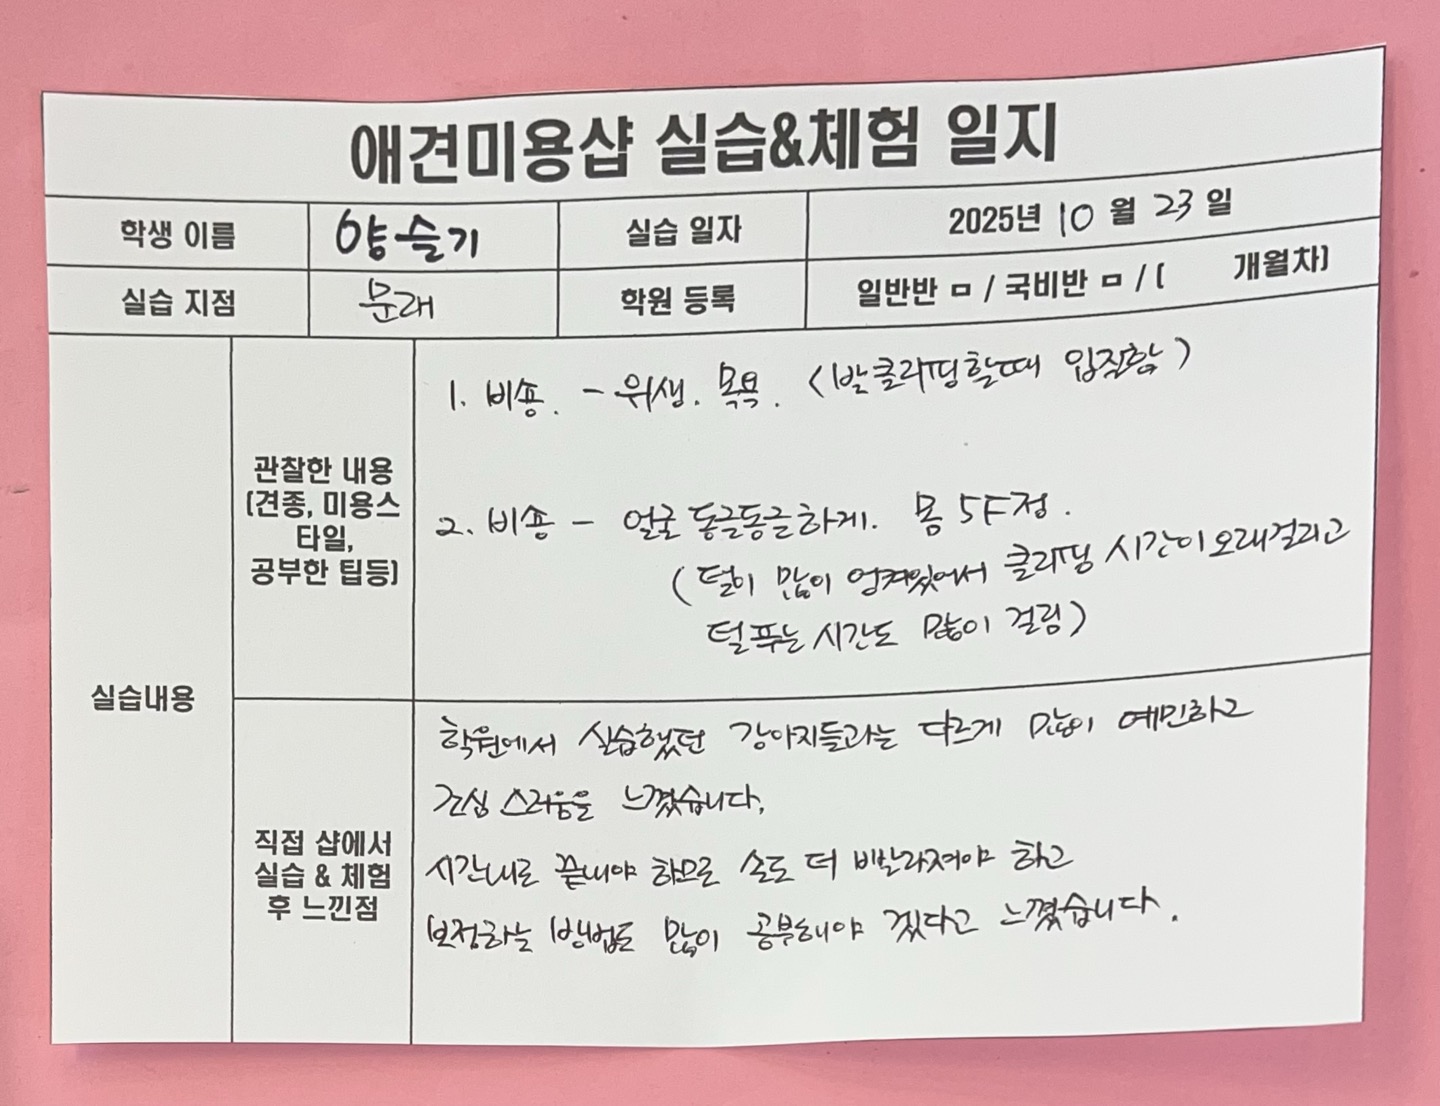 애견미용샵 실습&체험 일지
학생 이름 양슬기 실습 일자 2025년 10월 23일
실습 지점 문래 학원 등록 일반반 ㅁ / 국비반 ㅁ / ( 개월차)
실습내용
관찰한 내용
(견종, 미용스
타일,
공부한 팁등)
1. 비숑. - 위생. 목욕. <발클리핑할때 입질함>
2. 비숑 - 얼굴 동글동글하게. 몸 5F정.
(털이 많이 엉켜있어서 클리핑 시간이오래걸리고
털푸는 시간도 많이 걸림)
직접 샵에서
실습 & 체험
후 느낀점
학원에서 실습했던 강아지들과는 다르게 많이 예민하고
조심 스러움을 느꼈습니다.
시간내로 끝내야 하므로 손도 더 빨라져야 하고
보정하는 방법도 많이 공부해야 겠다고 느꼈습니다.